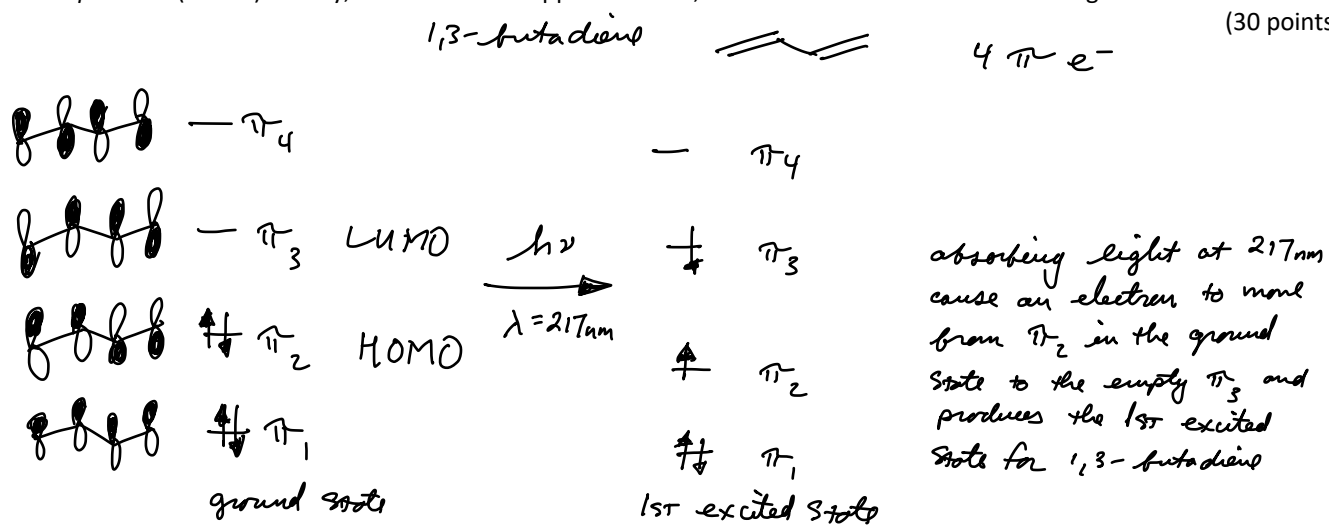 (30 points
1,3-butadiene
4 π e⁻
π₄
π₃ LUMO
π₂ HOMO
π₁
ground state
hν
λ = 217nm
π₄
π₃
π₂
π₁
1ST excited state
absorbing light at 217nm
cause an electron to move
from π₂ in the ground
state to the empty π₃ and
produces the 1ST excited
state for 1,3-butadiene